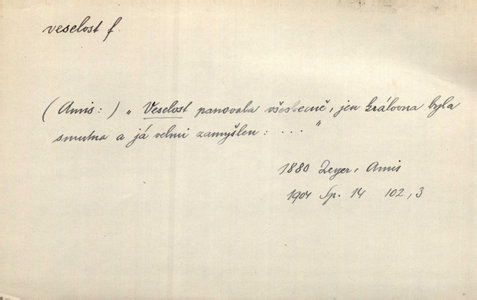 veselost f.
(Amis:) „ Veselost panovala všeobecně, jen královna byla
smutna a já velmi zamyšlen: ... "
1880 Zeyer, Amis
1904 Sp. 14 102,3